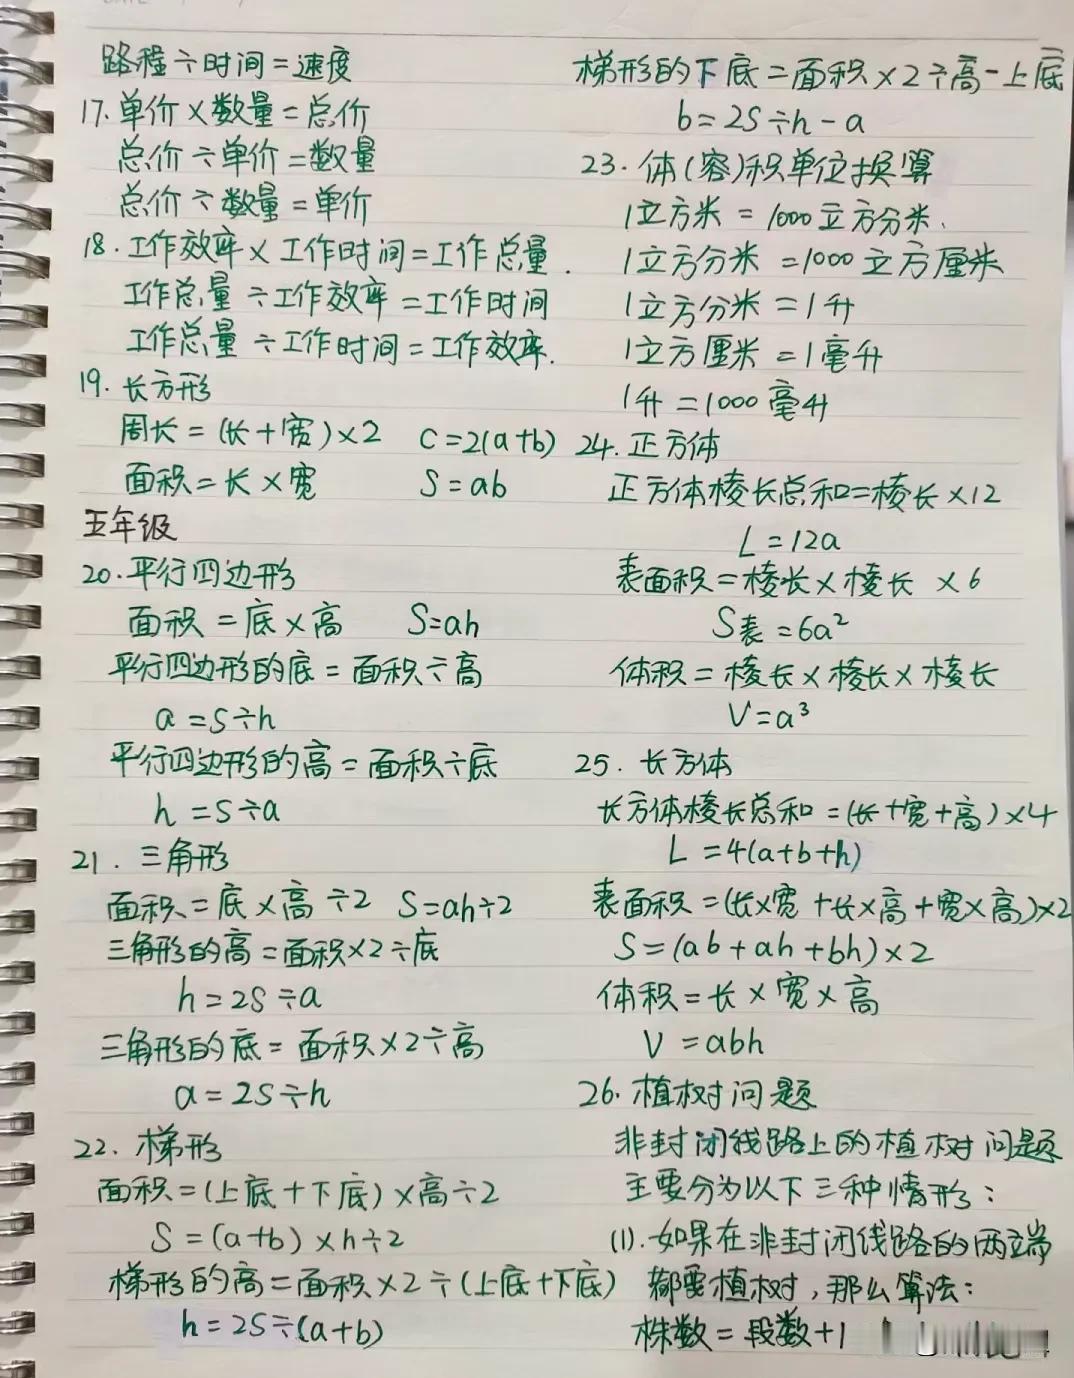 路程÷时间=速度
17.单价×数量=总价
总价÷单价=数量
总价÷数量=单价
18.工作效率×工作时间=工作总量.
工作总量÷工作效率=工作时间
工作总量÷工作时间=工作效率.
19.长方形
周长=(长+宽)×2 C=2(a+b)
面积=长×宽 S=ab
五年级
20.平行四边形
面积=底×高 S=ah
平行四边形的底=面积÷高
a=S÷h
平行四边形的高=面积÷底
h=S÷a
21.三角形
面积=底×高÷2 S=ah÷2
三角形的高=面积×2÷底
h=2S÷a
三角形的底=面积×2÷高
a=2S÷h
22.梯形
面积=(上底+下底)×高÷2
S=(a+b)×h÷2
梯形的高=面积×2÷(上底+下底)
h=2S÷(a+b)
梯形的下底=面积×2÷高-上底
b=2S÷h-a
23.体(容)积单位换算
1立方米=1000立方分米.
1立方分米=1000立方厘米
1立方分米=1升
1立方厘米=1毫升
1升=1000毫升
24.正方体
正方体棱长总和=棱长×12
L=12a
表面积=棱长×棱长×6
S表=6a²
体积=棱长×棱长×棱长
V=a³
25.长方体
长方体棱长总和=(长+宽+高)×4
L=4(a+b+h)
表面积=(长×宽+长×高+宽×高)×2
S=(ab+ah+bh)×2
体积=长×宽×高
V=abh
26.植树问题
非封闭线路上的植树问题
主要分为以下三种情形:
(1).如果在非封闭线路的两端
都要植树,那么算法:
株数=段数+1